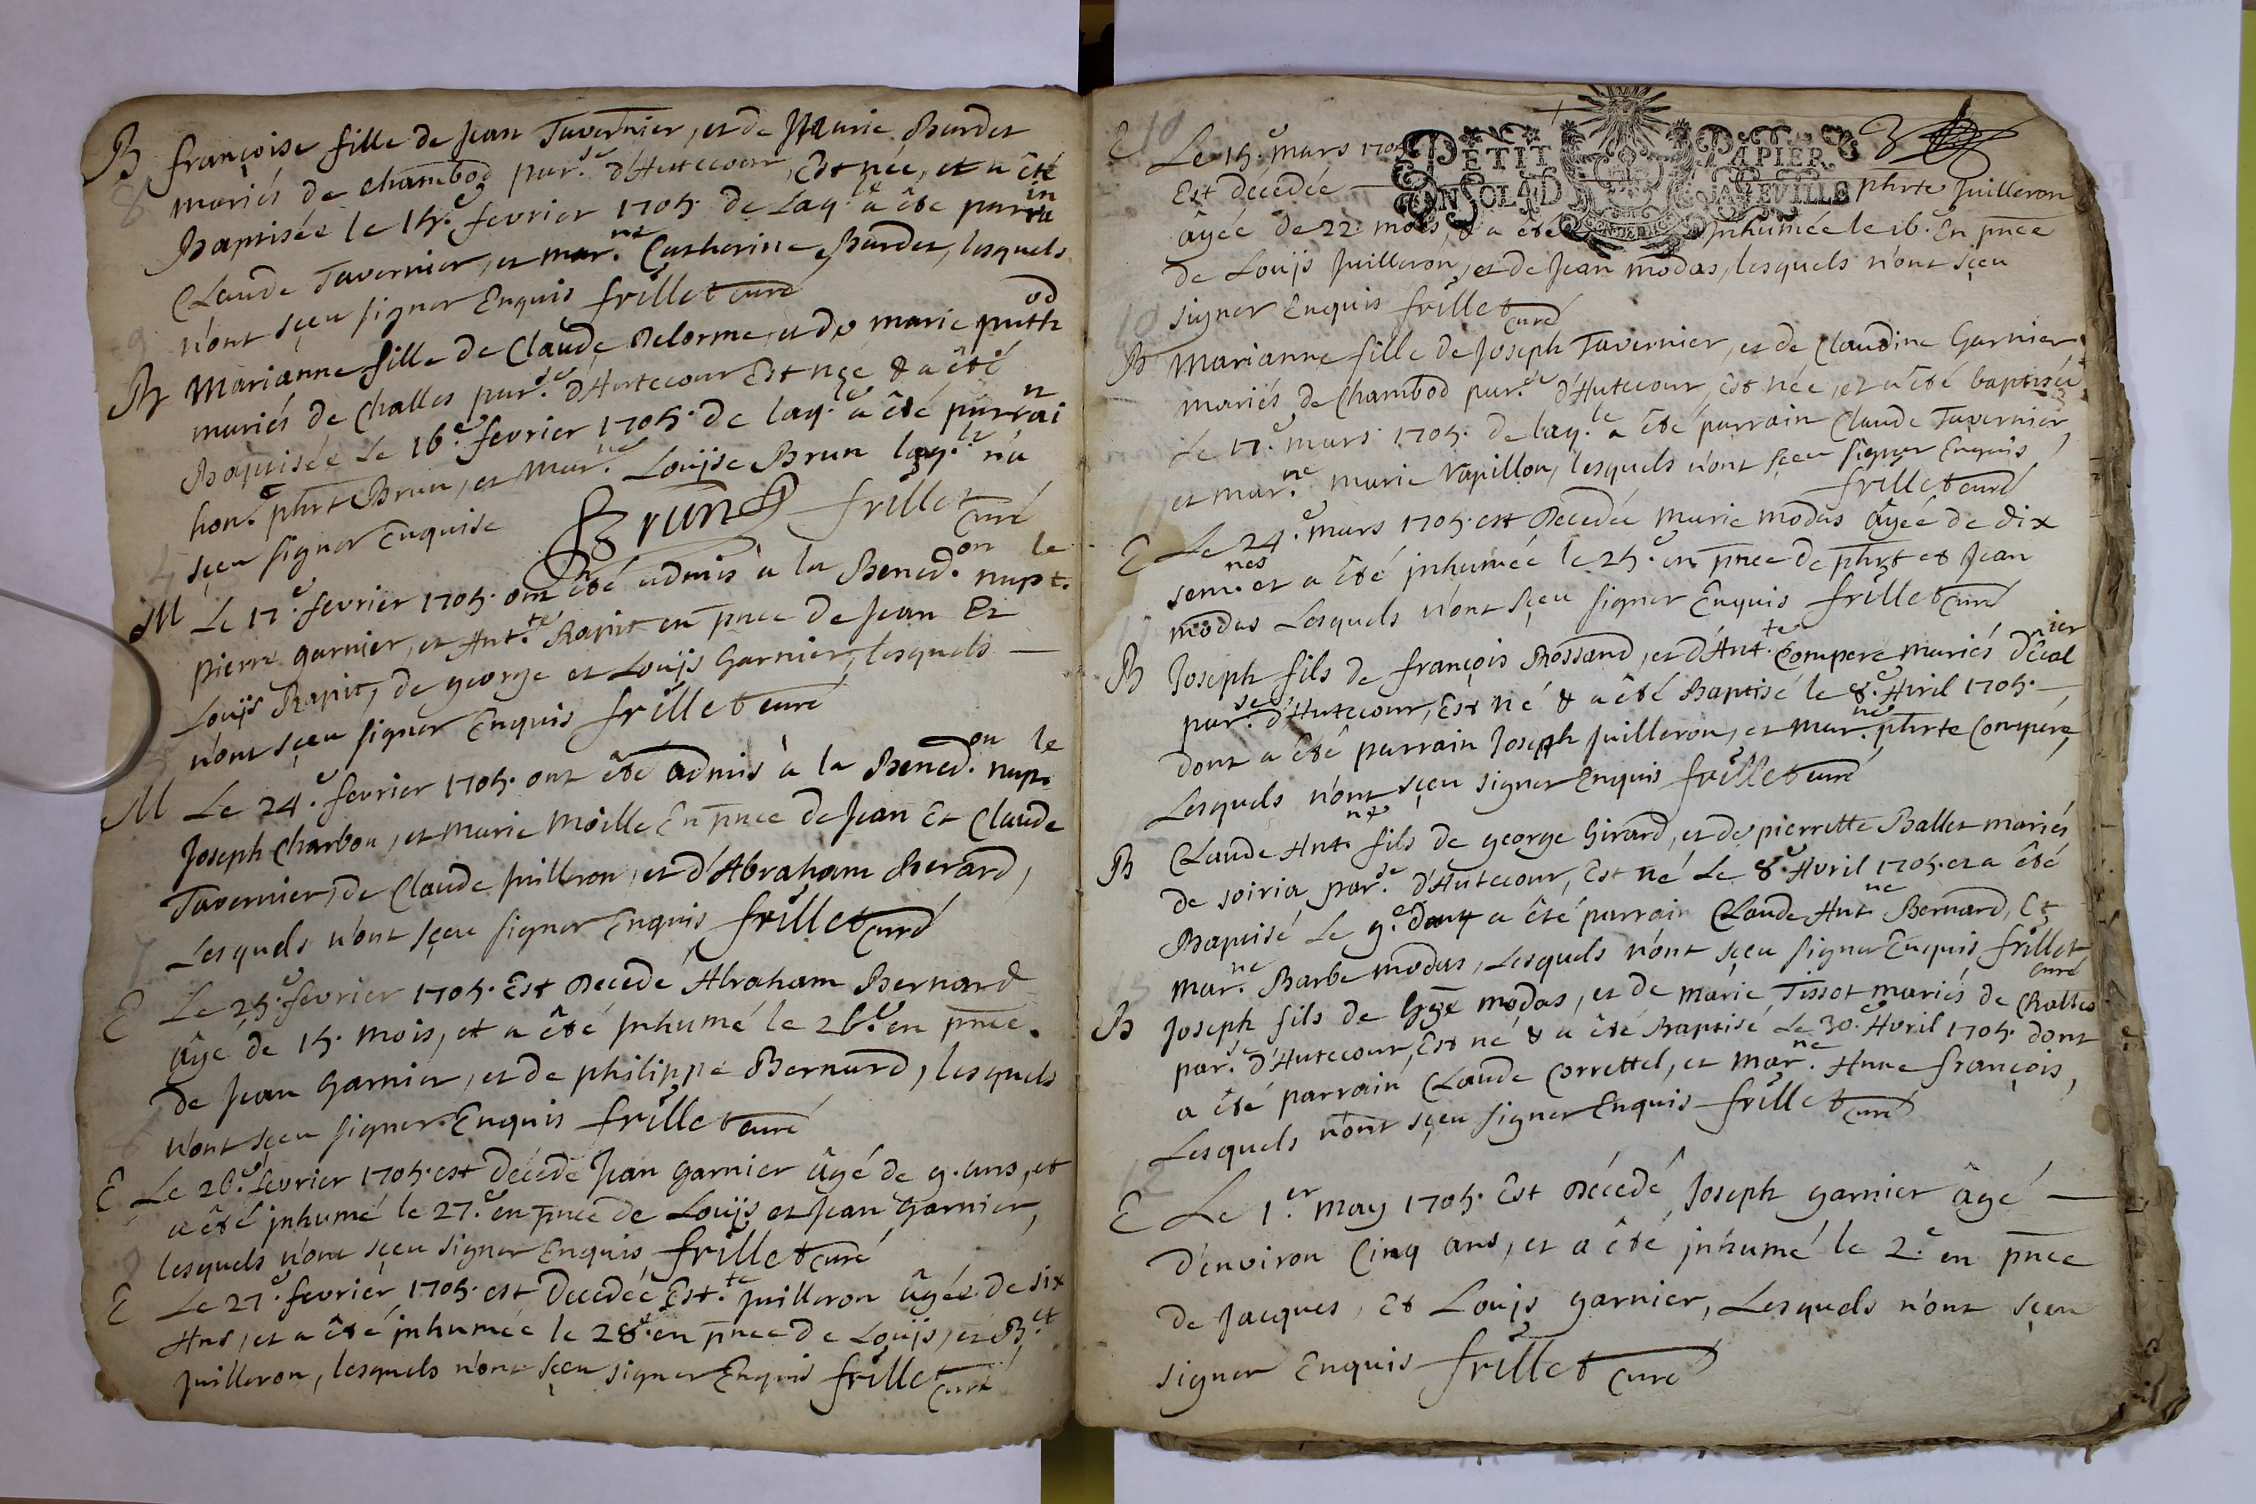 B françoise fille de Jean Tavernier, et de Marie Burdet
mariés de chambod par.se d'Hutecour, Est née, et a été
Baptisée le 15.e fevrier 1705. de Laq.le a été parrain
Claude Tavernier, et mar.ne Catherine Burdet, lesquels
n'ont sçeu signer Enquis frillet curé
B Marianne fille de Claude Delorme et de marie puthod
mariés de Challes par.se d'Hutecour Est née & a été
Baptisée Le 16.e fevrier 1705. de laq.le a été parrain
hon.e phrt Brun, et Mar.ne Louijse Brun laq.le n'a
sçeu signer Enquise Brun frillet curé
M Le 17.e fevrier 1705. ont été admis à la Bened.on nupt.le
pierre garnier, et Ant.te Rapit en pnce de Jean Et
Louijs Rapit, de george et Louijs Garnier, lesquels
n'ont sçeu signer Enquis frillet curé
M Le 24.e fevrier 1705. ont été admis à la Bened.on nup.le
Joseph Charbon, et Marie Moille En pnce de Jean Et Claude
Tavernier, de Claude Juilleron, et d'Abraham Berard,
Lesquels n'ont sçeu signer Enquis frillet curé
E Le 25.e fevrier 1705. Est Decedé Abraham Bernard
âgé de 15. mois, et a été Inhumé le 26.e en pnce
de Jean Garnier, et de philippe Bernard, lesquels
n'ont sçeu signer Enquis frillet curé
E Le 26.e fevrier 1705. est Décedé Jean Garnier âgé de 9. ans, et
a été inhumé le 27.e en pnce de Louijs et Jean Garnier,
lesquels n'ont sçeu signer Enquis frillet curé
E Le 27.e fevrier 1705. est Decedée Est.te Juilleron âgée de six
Ans, et a été inhumée le 28.e en pnce de Louijs, et B.et
Juilleron, lesquels n'ont sçeu signer Enquis frillet curé
10
E Le 15.e mars 1705
PETIT PAPIER
Est decedée phrte Juilleron
UN SOL LA D LA FEVILLE
âgée de 22. mois, & a été Inhumée le 16. En pnce
de Louijs Juilleron, et de Jean modas, lesquels n'ont sçeu
signer Enquis frillet curé
B Marianne fille de Joseph Tavernier, et de Claudine Garnier
mariés de Chambod par.se d'Hutecour, Est née, et a été baptisée
Le 17.e mars 1705. de laq.le a été parrain Claude Tavernier,
et mar.ne marie Vapillon, lesquels n'ont sçeu signer Enquis
frillet curé
E Le 24.e mars 1705. est Decedée Marie modas âgée de dix
sem.nes et a été inhumée le 25.e en pnce de phrt et Jean
modas Lesquels n'ont sçeu signer Enquis frillet curé
B Joseph fils de françois Rossand, et d'Ant.te Compere mariés
par.se d'Hutecour, Est né & a été Baptisé le 8.e Avril 1705.
dont a été parrain Joseph Juilleron, et mar.ne phrte Compere,
Lesquels n'ont sçeu signer Enquis frillet curé
B Claude Ant.ne fils de george Girard, et de pierrette Ballet mariés
de soiria par.se d'Hutecour, Est né Le 8.e Avril 1705. et a été
Baptisé Le 9.e dont a été parrain Claude Ant.ne Bernard, Et
mar.ne Barbe modas, Lesquels n'ont sçeu signer Enquis frillet curé
B Joseph fils de modas, et de marie Tissot mariés de Challes
par.se d'Hutecour, Est né & a été Baptisé Le 30.e Avril 1705. dont
a été parrain Claude Correttel, et mar.ne Anne françois,
Lesquels n'ont sçeu signer Enquis frillet curé
E Le 1.er May 1705. Est Décédé Joseph garnier âgé
d'environ Cinq ans, et a été inhumé le 2.e en pnce
de Jacques, Et Louijs garnier, Lesquels n'ont sçeu
signer Enquis frillet curé